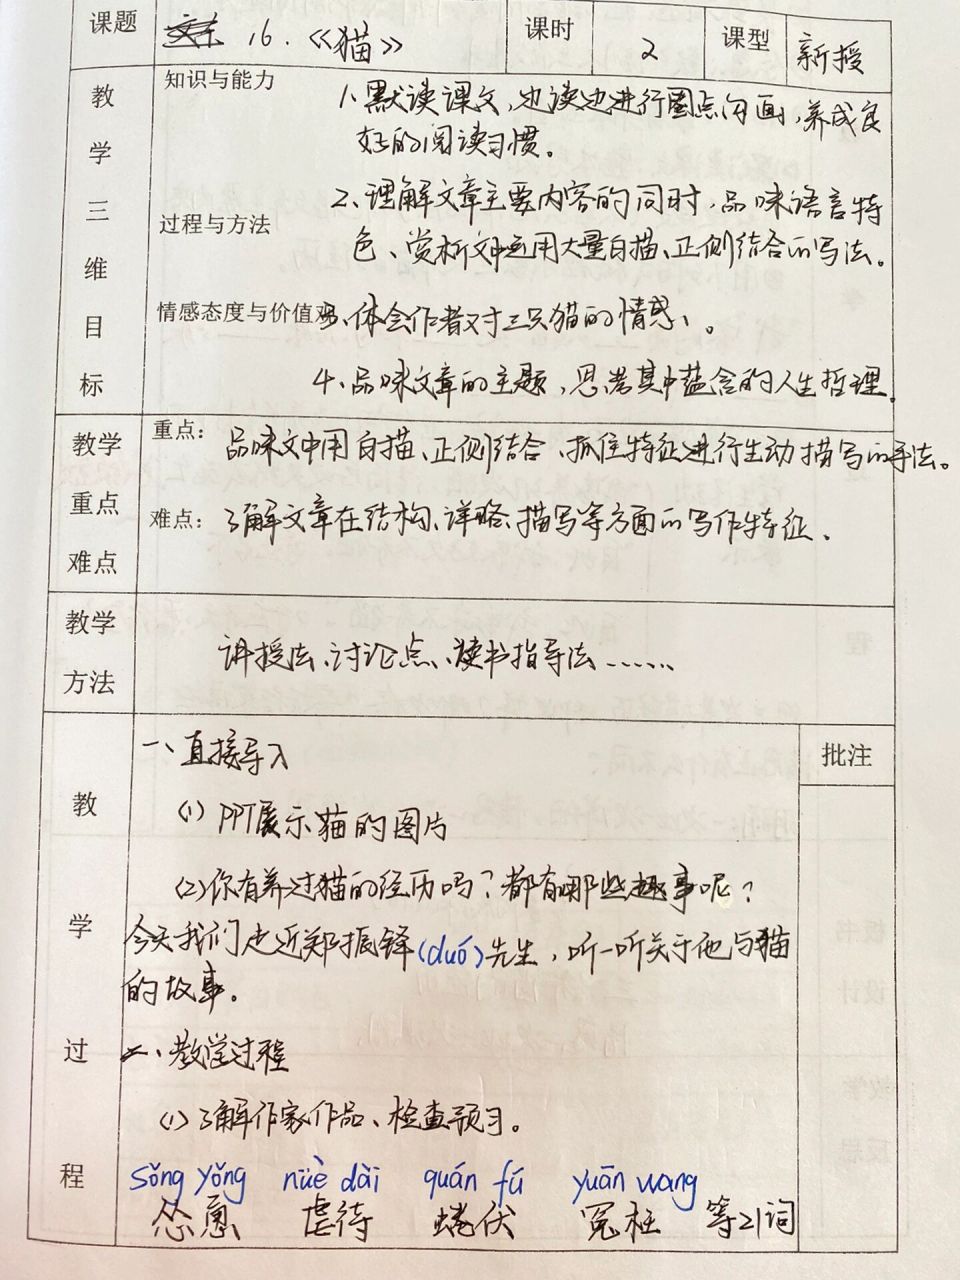 课题 16.《猫》 课时 2 课型 新授
教学三维目标
知识与能力
1、默读课文,边读边进行圈点勾画,养成良
好的阅读习惯。
过程与方法
2、理解文章主要内容的同时,品味语言特
色、赏析文中运用大量白描、正侧结合的写法。
情感态度与价值观
3、体会作者对三只猫的情感、。
4、品味文章的主题,思考其中蕴含的人生哲理.
教学重点难点
重点:
品味文中用白描、正侧结合、抓住特征进行生动描写的手法。
难点:
了解文章在结构、详略、描写等方面的写作特征、
教学方法
讲授法、讨论点、读书指导法……
教学过程
批注
一、直接导入
(1) PPT展示猫的图片
(2)你有养过猫的经历吗?都有哪些趣事呢?
今天我们走近郑振铎(duó)先生,听一听关于他与猫
的故事。
二、教学过程
(1)了解作家作品、检查预习。
sǒng yǒng nüè dài quán fú yuān wang
怂恿 虐待 蜷伏 冤枉 等21词